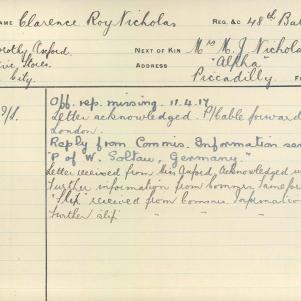 NAME Clarence Roy Nicholas REG. &C 48th Ba
Dorothy Oxford. NEXT OF KIN Mrs M. J. Nichola
Stores. ADDRESS "Alpha"
City. Piccadilly
Off. rep. missing. 11.4.17.
Letter acknowledged. P/Cable forward
London.
Reply from Commis. Information sen
"P of W. Soltau, Germany."
Letter received from Miss Oxford. Acknowledged
Further information from Commis. same for
"Slip" received from Commis. Information
Further slip